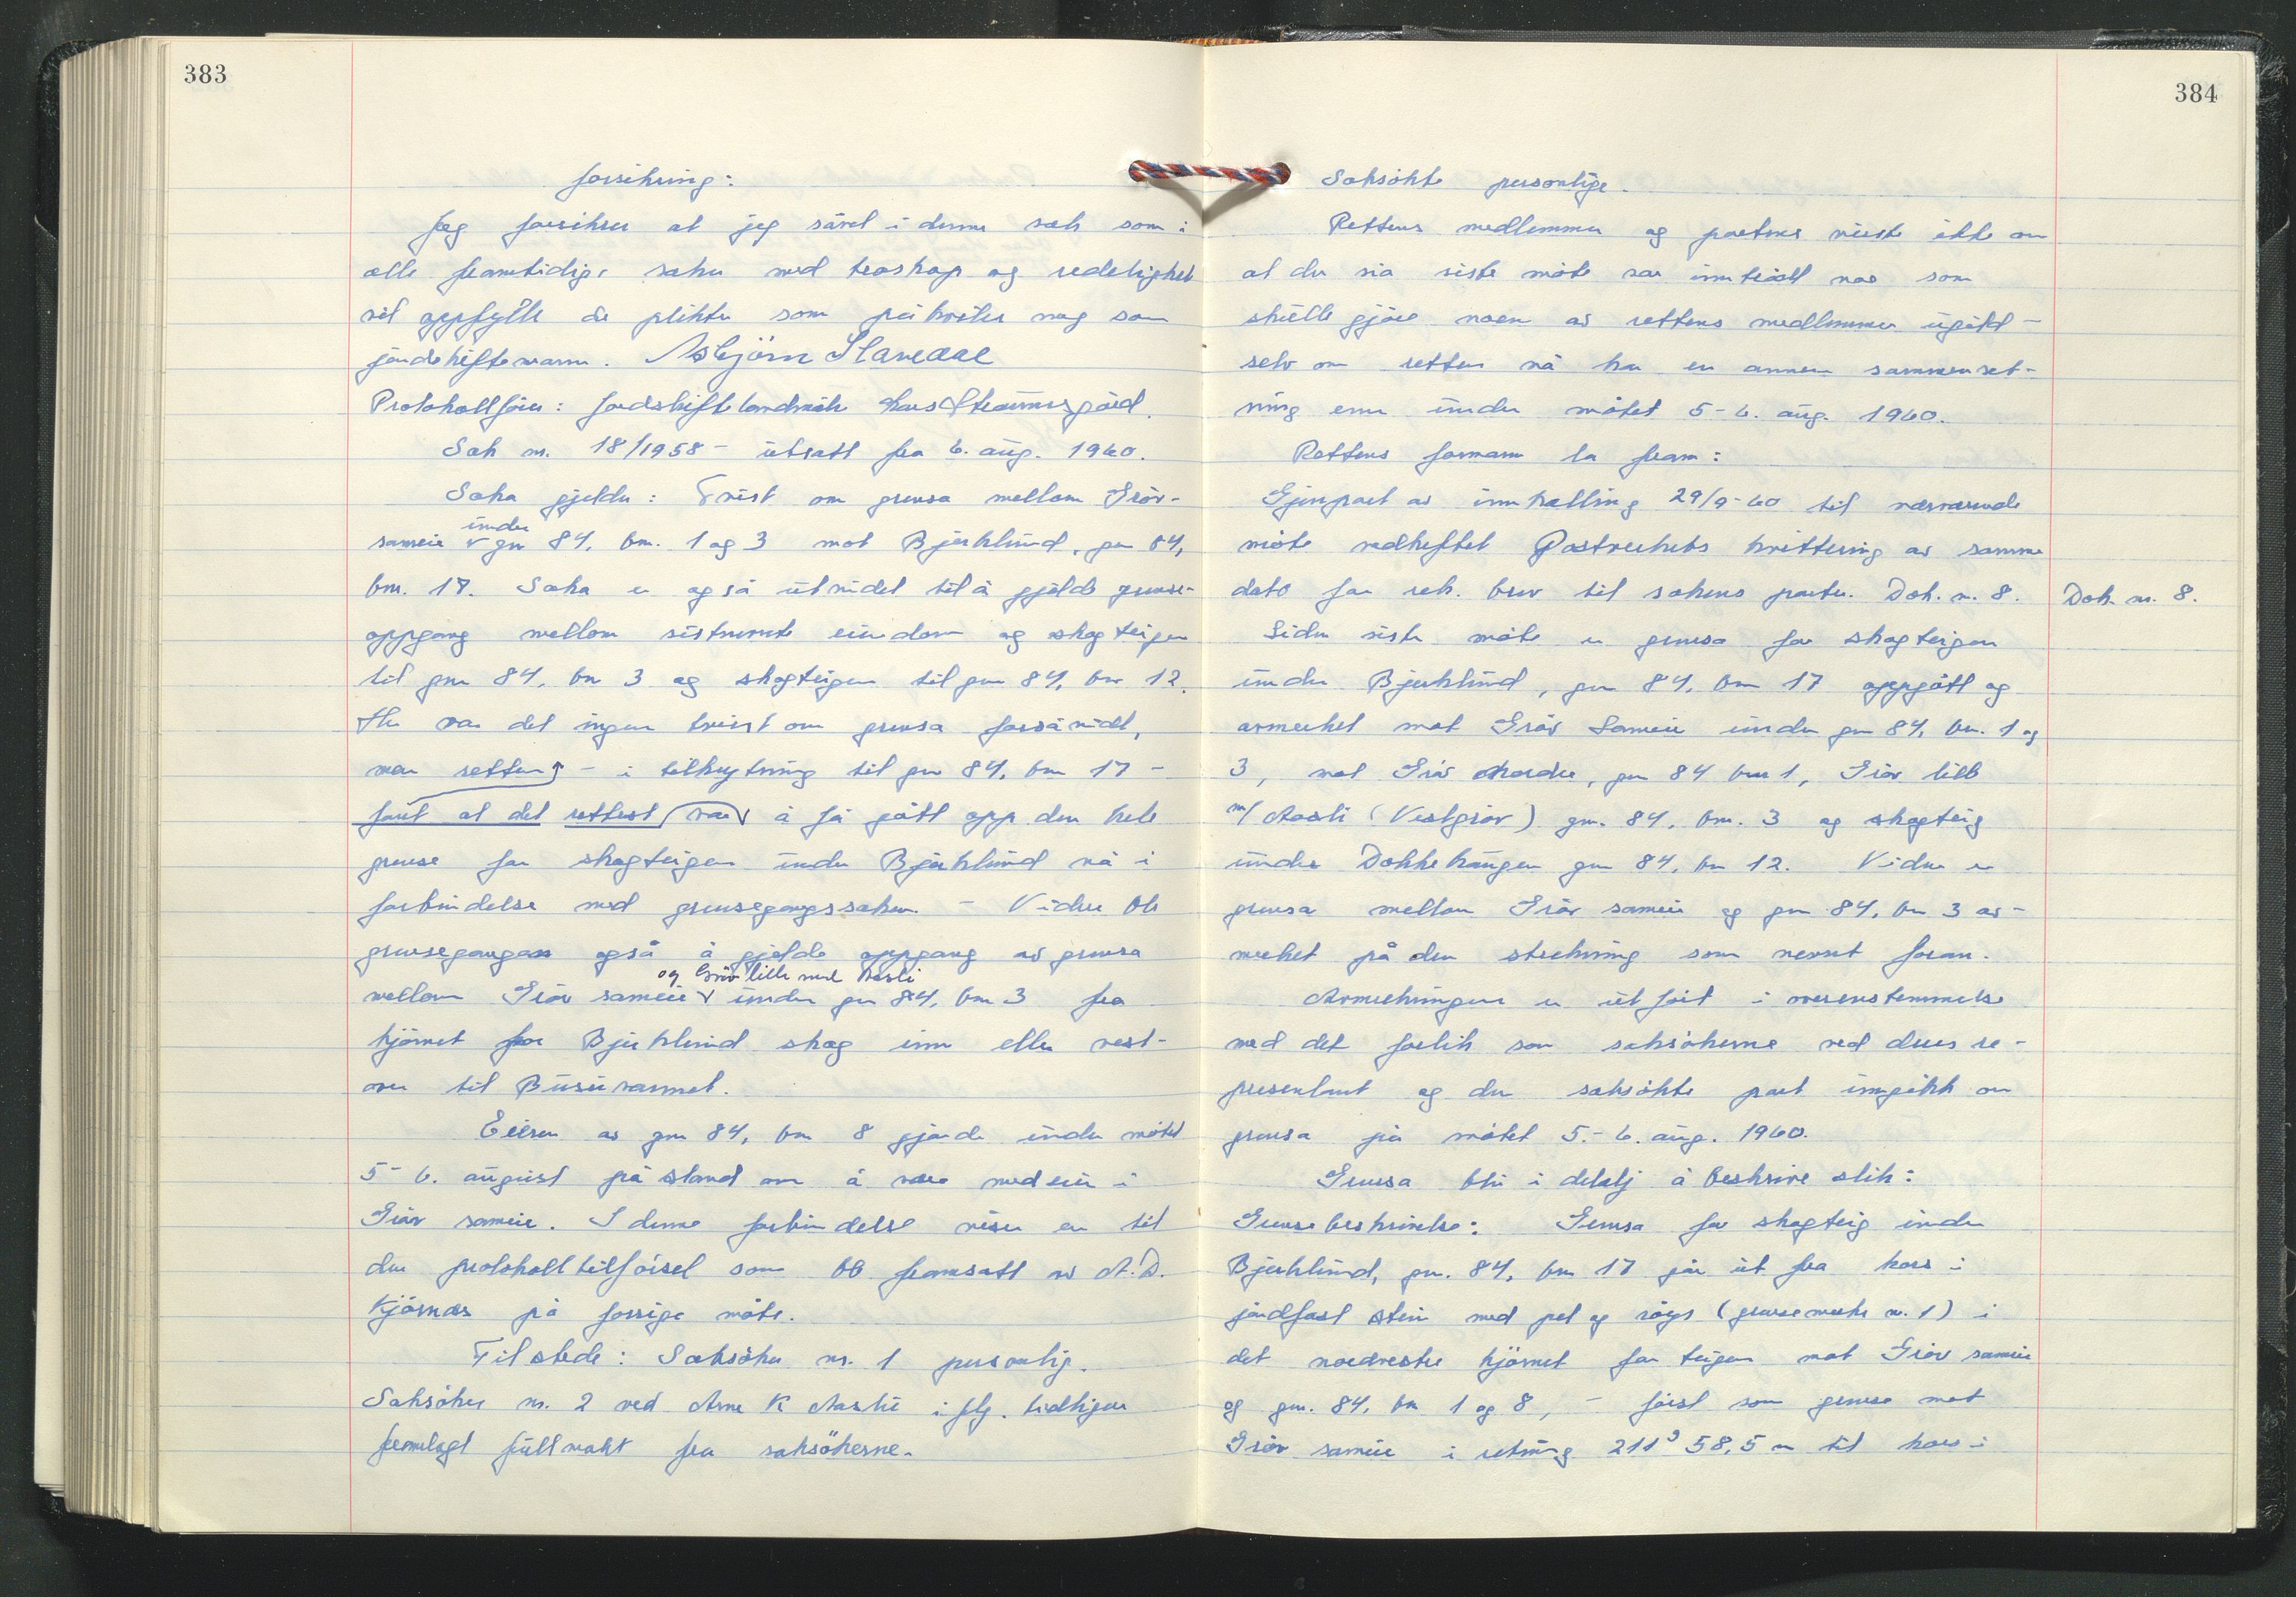 383
forsikring:
Jeg forsikrer at jeg såvel i denne sak som i
alle framtidige saker med troskap og redelighet
vil oppfylle de plikter som påhviler meg som
jordskiftemann. Asbjörn Slaredal
Protokollförer: Jordskiftelandmåler
Sak nr. 18/1958 - utsatt fra 6. aug. 1960.
Saka gjelder: Tvist om grensa mellom Gröv-
sameie under gnr 84, bnr. 1 og 3 mot Bjerklund, gnr 84,
bnr. 17. Saka er også utvidet til å gjelde grense-
oppgang mellom sistnevnte eiendom og skogteigen
til gnr 84, bnr 3 og skogteigen til gnr 84, bnr 12.
Her var det ingen tvist om grensa forsåvidt,
men retten - i tilknytning til gnr 84, bnr 17 -
fant at det rettest var å få gått opp den hele
grense for skogteigen under Bjerklund nå i
forbindelse med grensegangssaken. - Videre ble
grensegangen også å gjelde oppgang av grensa
og Gröv lille med Aasli
mellom Gröv sameie under gnr 84, bnr 3 fra
hjörnet for Bjerklund skog inn eller vest-
over til Busuvannet.
Eieren av gnr 84, bnr 8 gjorde under mötet
5-6. august påstand om å være medeier i
Gröv sameie. I denne forbindelse viser en til
den protokolltilförsel som ble framsatt av A.D.
Kjörnås på forrige möte.
Tilstede: Saksöker nr. 1 personlig.
Saksöker nr. 2 ved Arne K Aasli iflg. tidligere
fremlagt fullmakt fra saksökerne.
384
Saksökte personlige.
Rettens medlemmer og partene visste ikke om
at der sia siste möte var inntrådt noe som
skulle gjöre noen av rettens medlemmer ugild -
selv om retten nå har en annen sammenset-
ning enn under mötet 5-6. aug. 1960.
Rettens formann la fram:
Gjenpart av innkalling 29/9-60 til nærværende
möte vedheftet Postverkets kvittering av samme
dato for rek. brev til sakens parter. Dok. nr. 8.
Dok. nr. 8.
Siden siste möte er grensa for skogteigen
under Bjerklund, gnr 84, bnr 17 oppgått og
avmerket mot Gröv Sameie under gnr 84, bnr. 1 og
3, mot Gröv Nordre, gnr 84 bnr 1, Gröv lille
m/ Aasli (Vestgröv) gnr. 84, bnr. 3 og skogteig
under Dokkehaugen gnr 84, bnr 12. Videre er
grensa mellom Gröv sameie og gnr 84, bnr 3 av-
merket på den strekning som nevnt foran.
Avmerkingen er utfört i overenstemmelse
med det forlik som saksökerne ved deres re-
presentant og den saksökte part inngikk om
grensa på mötet 5.-6. aug. 1960.
Grensa blir i detalj å beskrive slik:
Grensebeskrivelse: Grensa for skogteig under
Bjerklund, gnr. 84, bnr 17 går ut fra kors i
jordfast stein med pel og röys (grensemerke nr. 1) i
det nordvestre hjörnet for teigen mot Gröv sameie
og gnr. 84, bnr 1 og 8, - först som grense mot
Gröv sameie i retning 211g 58,5 m til kors i